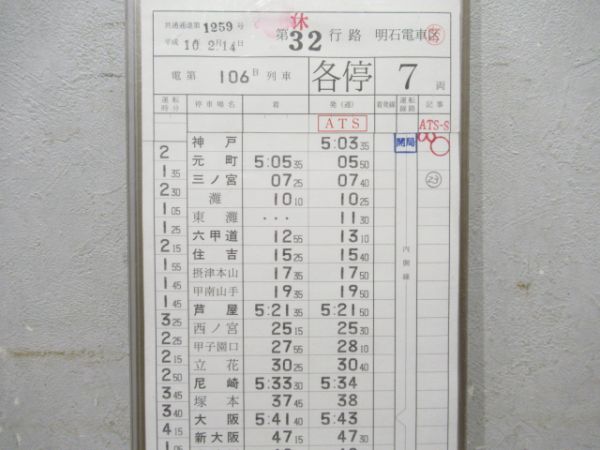 共通通達第 1259 号
平成 10 年 2 月 14 日
休
第 32 行路 明石電車区
電第 106B 列車 各停 7 両
運転時分 停車場名 着 発(通) 着発線 運転線路 記事
ATS ATS-S
神戸 5:03 35 開局
2 元町 5:05 35 05 50
1 35 三ノ宮 07 25 07 40 23
2 30 灘 10 10 10 25
1 05 東灘 ・・・ 11 30
1 25 六甲道 12 55 13 10 内側線
2 15 住吉 15 25 15 40
1 55 摂津本山 17 35 17 50
1 45 甲南山手 19 35 19 50
1 45 芦屋 5:21 35 5:21 50
3 25 西ノ宮 25 15 25 30
2 25 甲子園口 27 55 28 10
2 15 立花 30 25 30 40
2 50 尼崎 5:33 30 5:34
3 45 塚本 37 45 38
3 40 大阪 5:41 40 5:43
4 15 新大阪 47 15 47 30